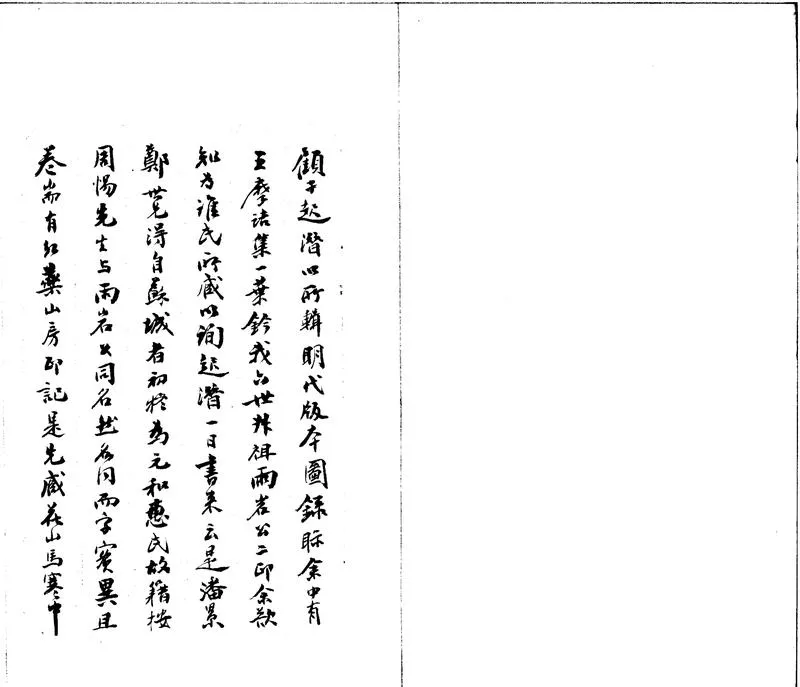 顧子起潛以所輯明代版本圖錄眎余中有
王摩詰集一葉鈐我六世叔祖雨岩公二印余欲
知為誰氏所藏以詢起潛一日書來云是潘景
鄭世兄得自蘇城者初疑為元和惠氏故籍按
周惕先生与雨岩公同名然名同而字實異且
卷耑有紅藥山房印記是先藏花山馬寒中